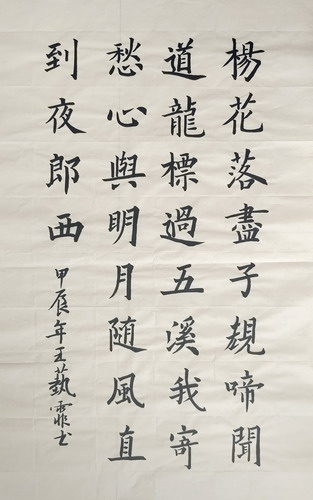 楊花落盡子規啼聞
道龍標過五溪我寄
愁心與明月随風直
到夜郎西
甲辰年王藝霏书